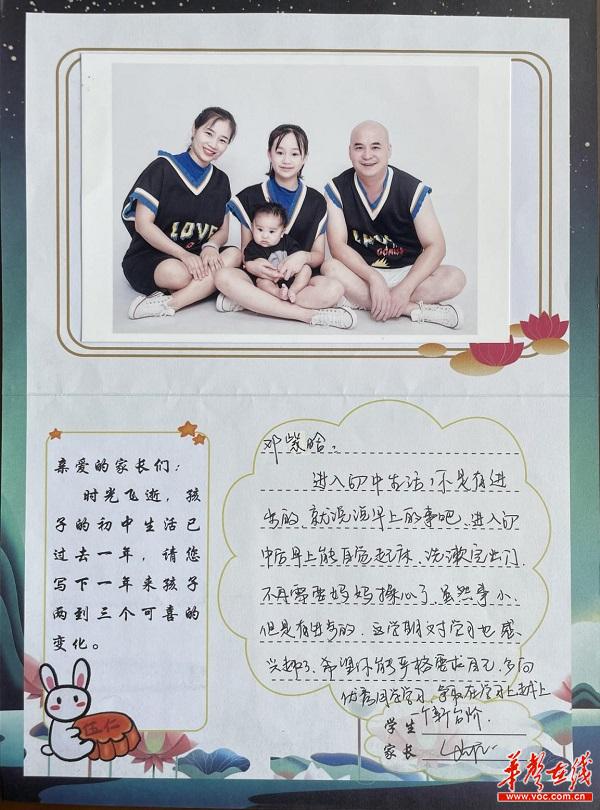 LOVE
亲爱的家长们:
时光飞逝,孩
子的初中生活已
过去一年,请您
写下一年来孩子
两到三个可喜的
变化。
伍仁
邓紫晗:
进入初中生活,你是有进
步的,就说说早上的事吧,进入初
中后早上能自觉起床、洗漱完出门,
不再需要妈妈操心了,虽然事小,
但是有进步的,这学期对学习也感
兴趣了,希望你能严格要求自己,多向
优秀同学学习,争取在学习上越上
一个新台阶
学生
家长
华声在线
www.voc.com.cn